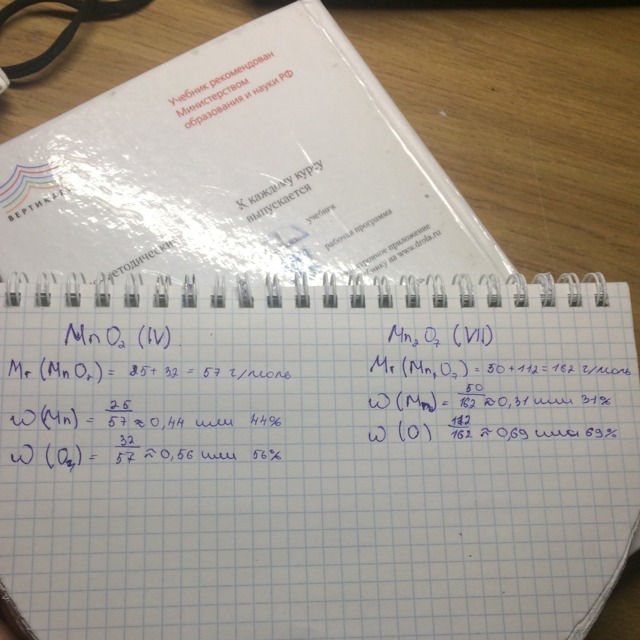 Учебник рекомендован
Министерством
образования и науки РФ
ВЕРТИК
К каждому курсу
выпускается
учебник
рабочая программа
приложение
на www.drofa.ru
MnO₂ (IV)
Mr (MnO₂) = 25 + 32 = 57 г/моль
ω (Mn) = 25/57 ≈ 0,44 или 44%
ω (O₂) = 32/57 ≈ 0,56 или 56%
Mn₂O₇ (VII)
Mr (Mn₂O₇) = 50 + 112 = 162 г/моль
ω (Mn) = 50/162 ≈ 0,31 или 31%
ω (O) 112/162 ≈ 0,69 или 69%